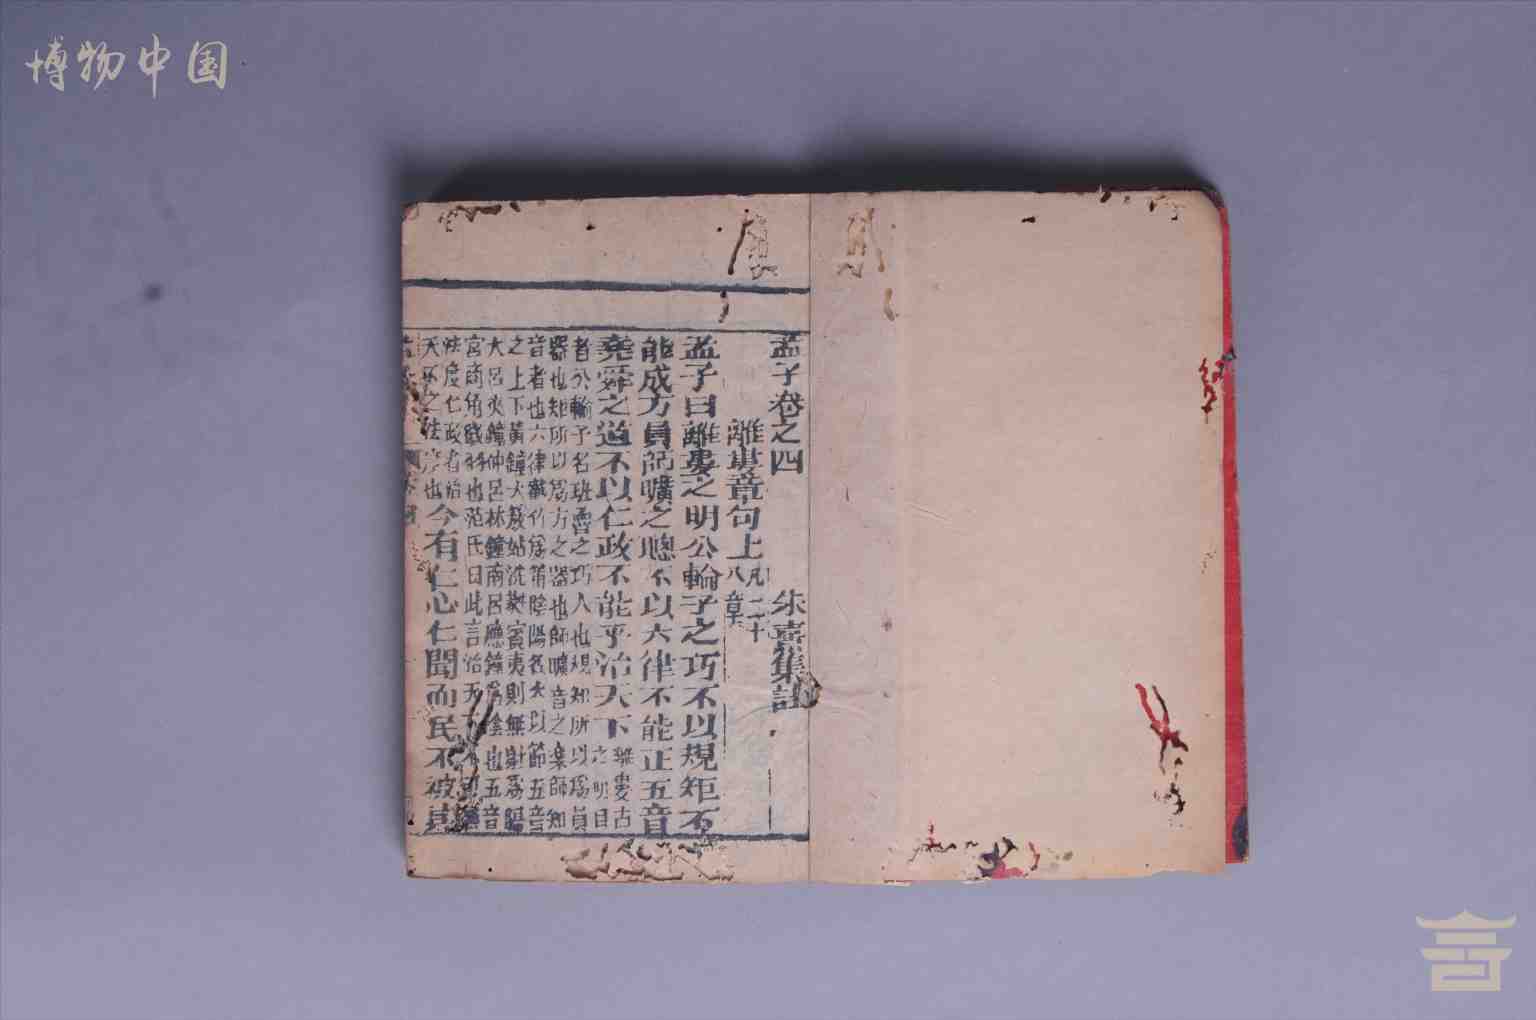 博物中国
孟子卷之四
朱熹集註
離婁章句上
凡二十
八章
孟子曰離婁之明公輸子之巧不以規矩不
能成方員師曠之聰不以六律不能正五音
堯舜之道不以仁政不能平治天下
離婁古
之明目
者公輸子名班魯之巧人也規知所以爲員
器也矩所以爲方之器也師曠音之樂師知
音者也六律截竹爲筩陰陽各六以節五音
之上下黃鐘大簇姑洗蕤賓夷則無射爲陽
大呂夾鐘仲呂林鐘南呂應鐘爲陰也五音
宮商角徵羽也范氏曰此言治天下不可無
法度仁政者治
天下之法度也
今有仁心仁聞而民不被其